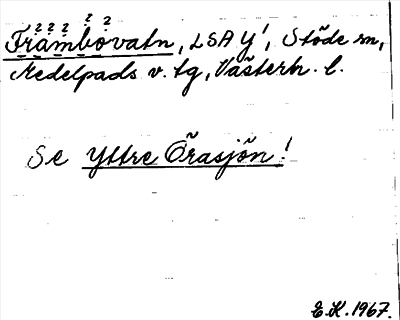 Främbovatn, LSA Y!, Stöde sn,
Medelpads v. tg, Västern. l.
Se Yttre Örasjön!
E.K. 1967.